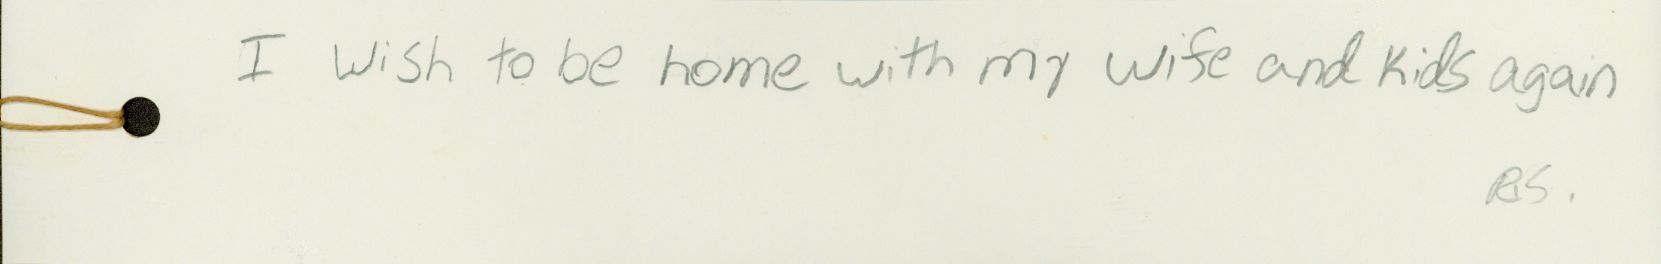 I wish to be home with my wife and kids again
RS.